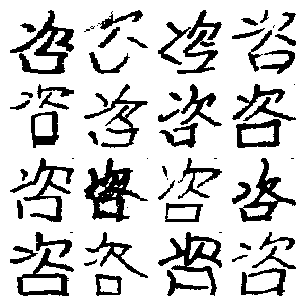 咨咨咨咨
咨咨咨咨
咨咨咨咨
咨咨咨咨